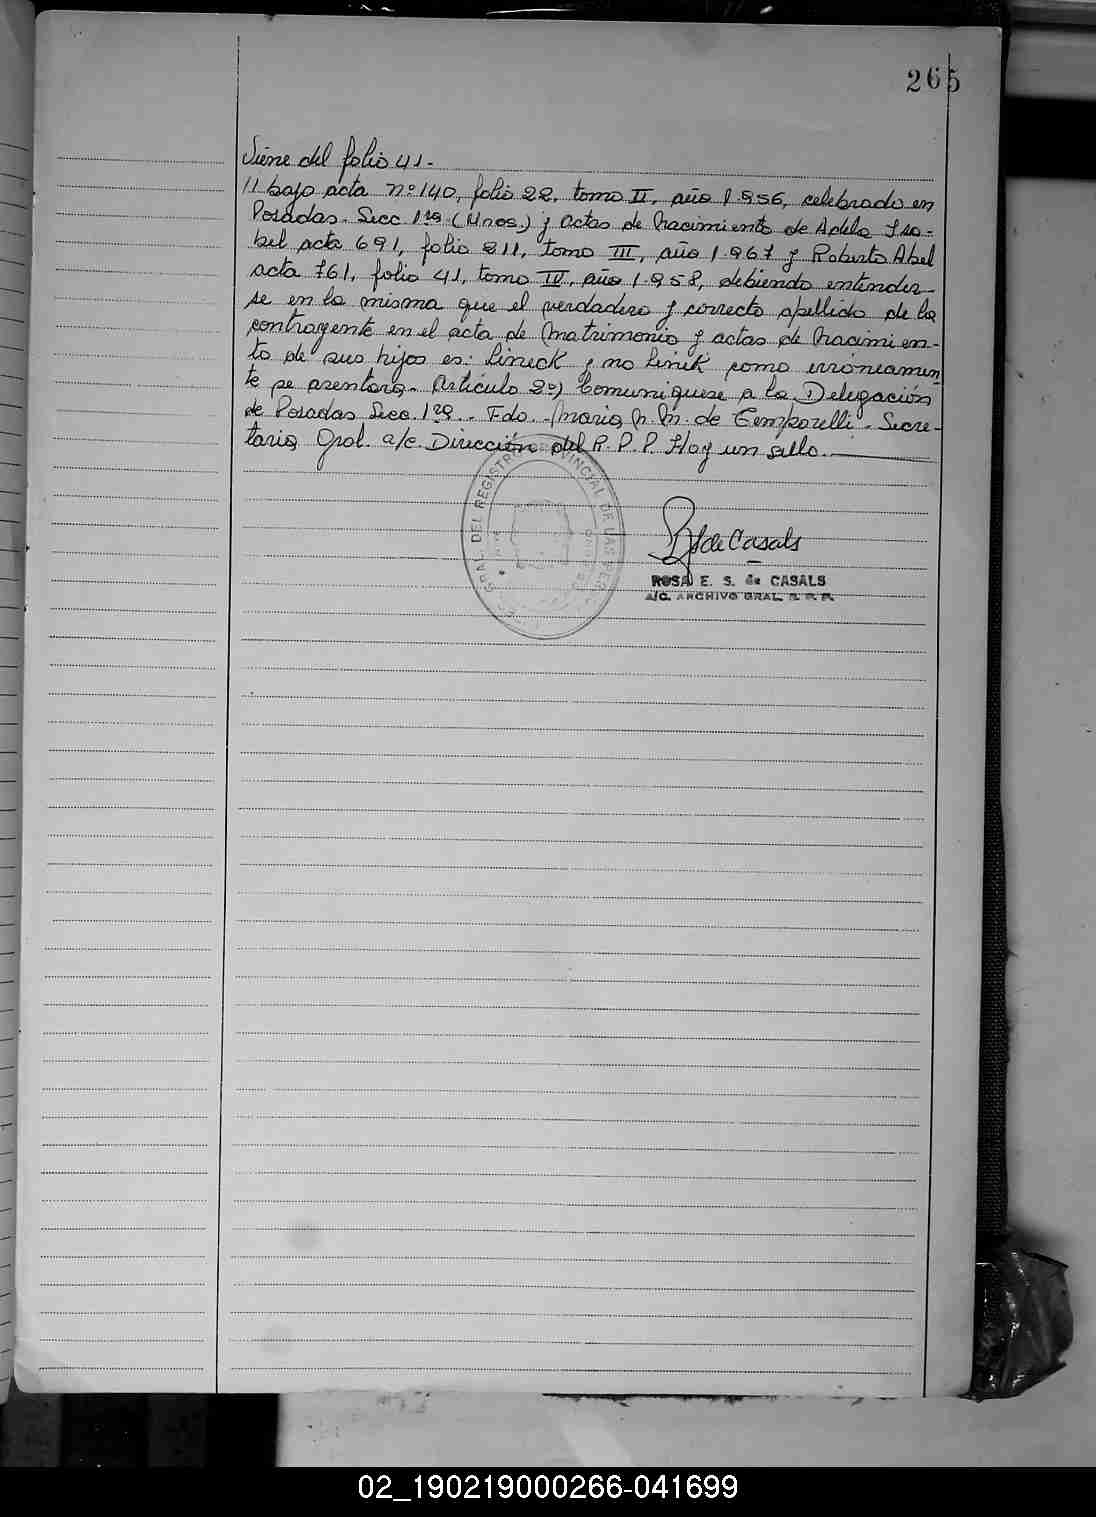 265
Viene del folio 41.-
// bajo acta nº 140, folio 22, tomo II, año 1.956, celebrado en
Posadas. Secc. 1ra. (Mnes.) y actas de Nacimiento de Adela Isa-
bel acta 691, folio 211, tomo III, año 1.967 y Roberto Abel
acta 761, folio 41, tomo IV, año 1.958, debiendo entender-
se en la misma que el verdadero y correcto apellido de la
contrayente en el acta de Matrimonio y actas de Nacimien-
to de sus hijos es: Lineck y no Linik como erróneamen-
te se asentara.- Artículo 2º) Comuníquese a la Delegación
de Posadas Secc. 1ra.- Fdo.- María N. M. de Temporelli.- Secre-
taria Gral. a/c. Dirección del R. P. P. Hay un sello.-
GRAL. DEL REGISTRO PROVINCIAL DE LAS PER
de Casals
ROSA E. S. de CASALS
A/C. ARCHIVO GRAL. R. P. P.
02_190219000266-041699